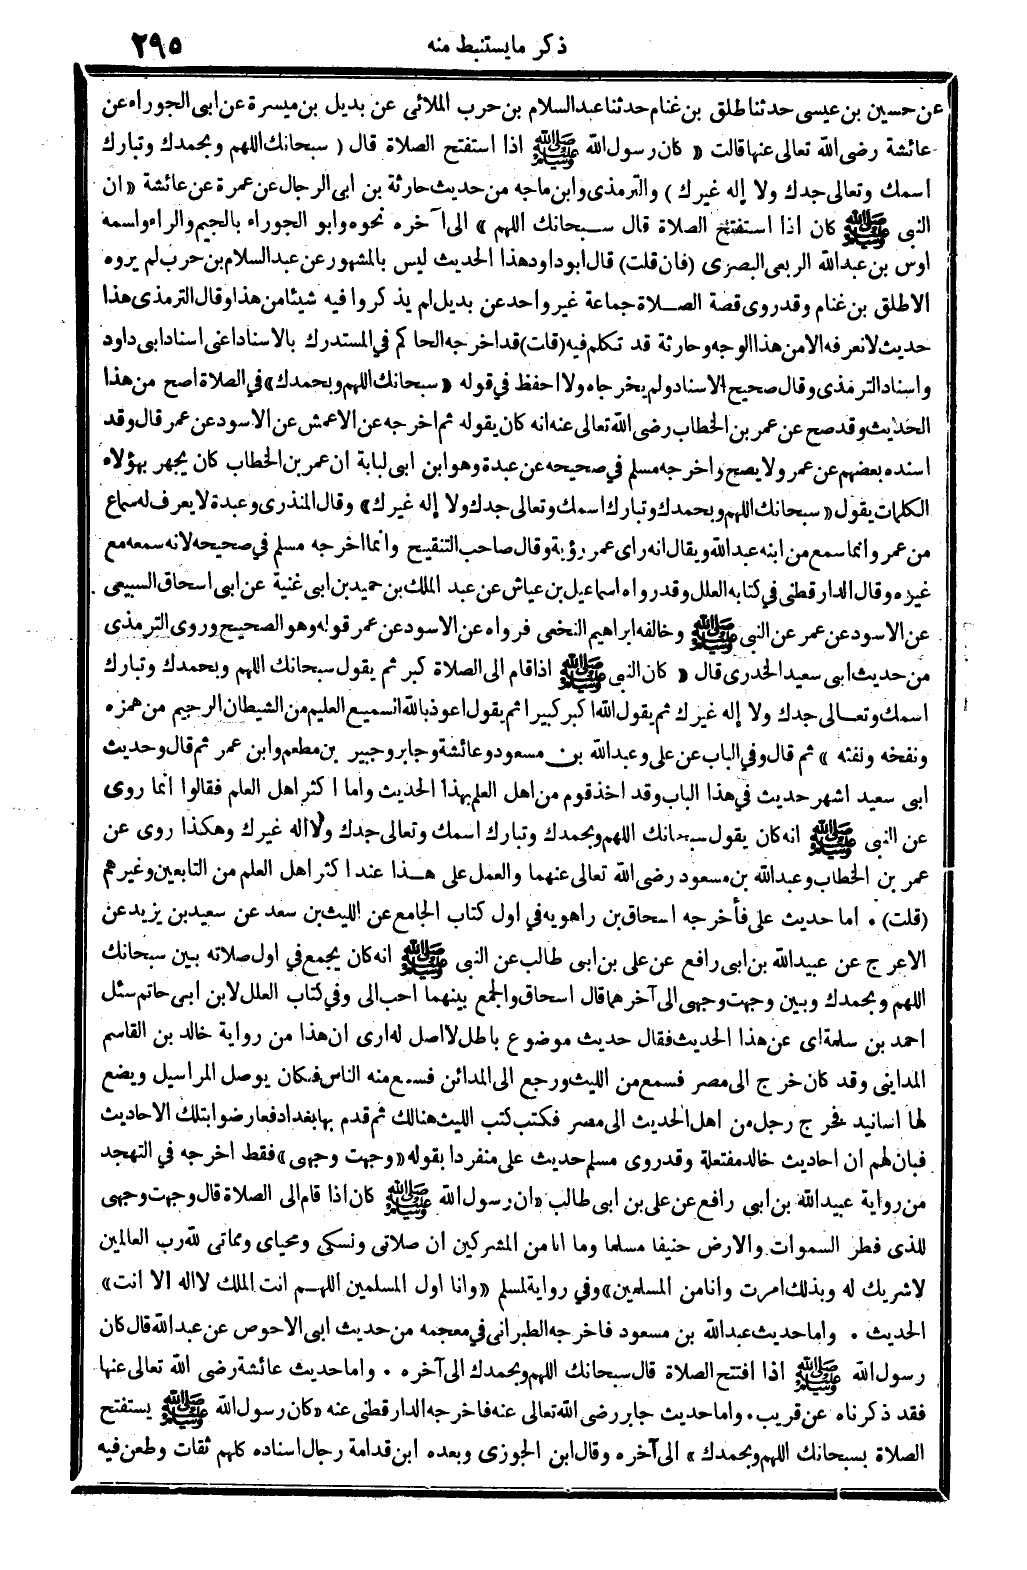 ذكر مايستنبط منه ٢٩٥
عن حسين بن عيسى حدثنا طلق بن غنام حدثنا عبد السلام بن حرب الملائى عن بديل بن ميسرة عن ابى الجوراء عن
عائشة رضى الله تعالى عنها قالت « كان رسول الله ﷺ اذا استفتح الصلاة قال ( سبحانك اللهم وبحمدك وتبارك
اسمك وتعالى جدك ولا إله غيرك ) والترمذى وابن ماجه من حديث حارثة بن ابى الرجال عن عمرة عن عائشة « ان
النبى ﷺ كان اذا استفتح الصلاة قال سبحانك اللهم » الى آخره نحوه وابو الجوراء بالجيم والراء واسمه
اوس بن عبدالله الربعى البصرى (فان قلت) قال ابو داود هذا الحديث ليس بالمشهور عن عبد السلام بن حرب لم يروه
الا طلق بن غنام وقد روى قصة الصلاة جماعة غير واحد عن بديل لم يذكروا فيه شيئا من هذا وقال الترمذى هذا
حديث لا نعرفه الا من هذا الوجه وحارثة قد تكلم فيه (قات) قد اخرجه الحاكم في المستدرك بالاسناد اعنى اسناد ابى داود
واسناد الترمذى وقال صحيح الاسناد ولم يخرجاه ولا احفظ في قوله « سبحانك اللهم وبحمدك» في الصلاة اصح من هذا
الحديث وقد صح عن عمر بن الخطاب رضى الله تعالى عنه انه كان يقوله ثم اخرجه عن الاعمش عن الاسود عن عمر قال وقد
اسنده بعضهم عن عمر ولا يصح واخرجه مسلم في صحيحه عن عبدة وهو ابن ابى لبابة ان عمر بن الخطاب كان يجهر بهؤلاء
الكلمات يقول « سبحانك اللهم وبحمدك وتبارك اسمك وتعالى جدك ولا إله غيرك» وقال المنذرى وعبدة لا يعرف له سماع
من عمر وانما سمع من ابنه عبدالله ويقال انه راى عمر رؤية وقال صاحب التنقيح وانما اخرجه مسلم في صحيحه لانه سمعه مع
غيره وقال الدارقطنى في كتابه العلل وقد رواه اسماعيل بن عياش عن عبد الملك بن حميد بن ابى غنية عن ابى اسحاق السبيعى
عن الاسود عن عمر عن النبى ﷺ وخالفه ابراهيم النخعى فرواه عن الاسود عن عمر قوله وهو الصحيح وروى الترمذى
من حديث ابى سعيد الخدرى قال « كان النبى ﷺ اذا قام الى الصلاة كبر ثم يقول سبحانك اللهم وبحمدك وتبارك
اسمك وتعالى جدك ولا إله غيرك ثم يقول الله اكبر كبيرا ثم يقول اعوذ بالله السميع العليم من الشيطان الرجيم من همزه
ونفخه ونفثه » ثم قال وفي الباب عن على وعبدالله بن مسعود وعائشة وجابر وجبير بن مطعم وابن عمر ثم قال وحديث
ابى سعيد اشهر حديث في هذا الباب وقد اخذ قوم من اهل العلم بهذا الحديث واما اكثر اهل العلم فقالوا انما روى
عن النبى ﷺ انه كان يقول سبحانك اللهم وبحمدك وتبارك اسمك وتعالى جدك ولا اله غيرك وهكذا روى عن
عمر بن الخطاب وعبدالله بن مسعود رضى الله تعالى عنهما والعمل على هذا عند اكثر اهل العلم من التابعين وغيرهم
(قلت) . اما حديث على فأخرجه اسحاق بن راهويه في اول كتاب الجامع عن الليث بن سعد عن سعيد بن يزيد عن
الاعرج عن عبيدالله بن ابى رافع عن على بن ابى طالب عن النبى ﷺ انه كان يجمع في اول صلاته بين سبحانك
اللهم وبحمدك وبين وجهت وجهى الى آخرهما قال اسحاق والجمع بينهما احب الى وفي كتاب العلل لابن ابى حاتم سئل
احمد بن سلمة اى عن هذا الحديث فقال حديث موضوع باطل لا اصل له ارى ان هذا من رواية خالد بن القاسم
المداينى وقد كان خرج الى مصر فسمع من الليث ورجع الى المدائن فسمع منه الناس فكان يوصل المراسيل ويضع
لها اسانيد فخرج رجل من اهل الحديث الى مصر فكتب كتب الليث هنالك ثم قدم بها بغداد فعارضوا بتلك الاحاديث
فبان لهم ان احاديث خالد مفتعلة وقد روى مسلم حديث على منفردا بقوله «وجهت وجهى» فقط اخرجه في التهجد
من رواية عبيدالله بن ابى رافع عن على بن ابى طالب «ان رسول الله ﷺ كان اذا قام الى الصلاة قال وجهت وجهى
للذى فطر السموات والارض حنيفا مسلما وما انا من المشركين ان صلاتى ونسكى ومحياى ومماتى لله رب العالمين
لا شريك له وبذلك امرت وانا من المسلمين» وفي رواية لمسلم «وانا اول المسلمين اللهم انت الملك لا اله الا انت»
الحديث . واما حديث عبدالله بن مسعود فاخرجه الطبرانى في معجمه من حديث ابى الاحوص عن عبدالله قال كان
رسول الله ﷺ اذا افتتح الصلاة قال سبحانك اللهم وبحمدك الى آخره . واما حديث عائشة رضى الله تعالى عنها
فقد ذكرناه عن قريب . واما حديث جابر رضى الله تعالى عنه فاخرجه الدارقطنى عنه «كان رسول الله ﷺ يستفتح
الصلاة بسبحانك اللهم وبحمدك» الى آخره وقال ابن الجوزى وبعده ابن قدامة رجال اسناده كلهم ثقات وطعن فيه